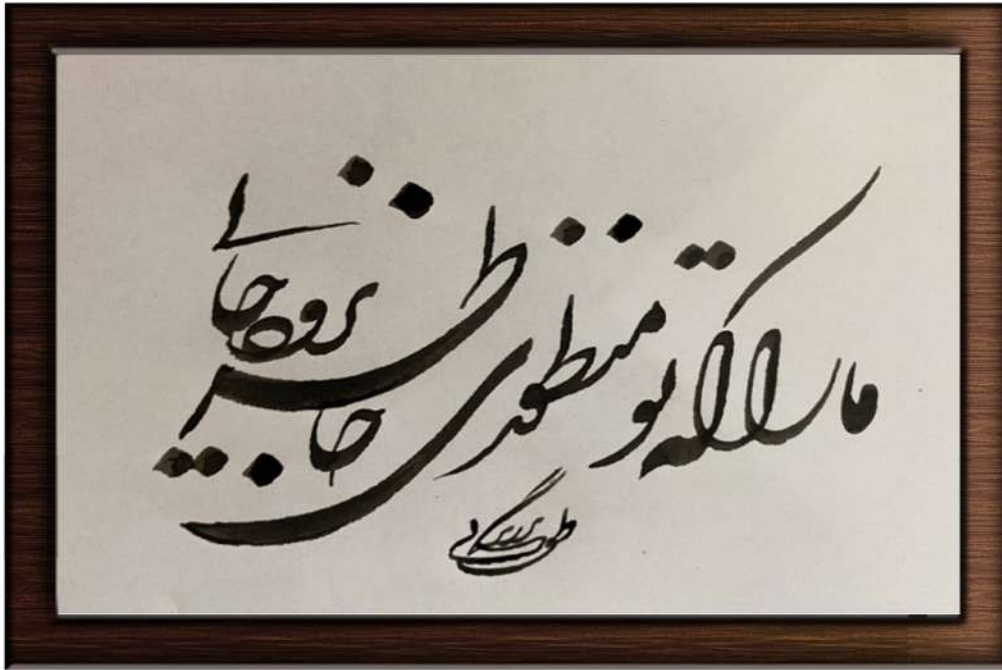 ما را که تو منظوری خاطر نرود جایی